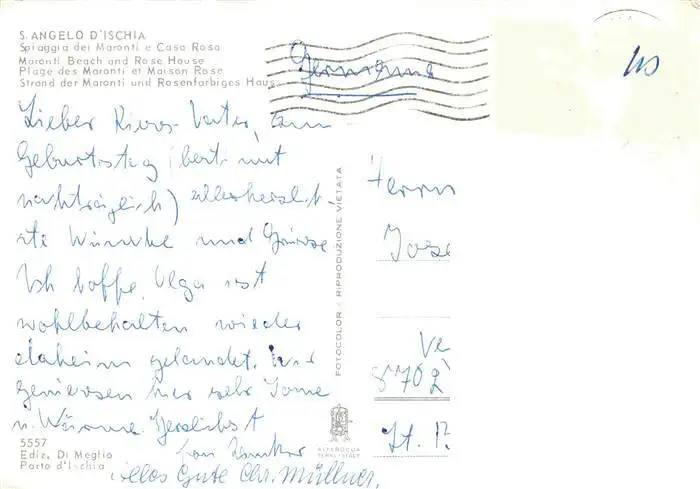 S. ANGELO D'ISCHIA
Spiaggia dei Maronti e Casa Rosa
Maronti Beach and Rose House
Plage des Maronti et Maison Rose
Strand der Maronti und Rosenfarbiges Haus
Germania
Lieber Vater, zum
Geburtstag
nachträglich) allerherzlich-
ste Wünsche und Grüsse
Ich hoffe, Olga ist
wohlbehalten wieder
daheim gelandet. Wir
geniessen hier sehr Sonne
u. Wärme. Herzlichst
Alles Gute Chr. Müllner.
FOTOCOLOR - RIPRODUZIONE VIETATA
Herrn
8702
St. P
5557
Ediz. Di Meglio
Porto d'Ischia